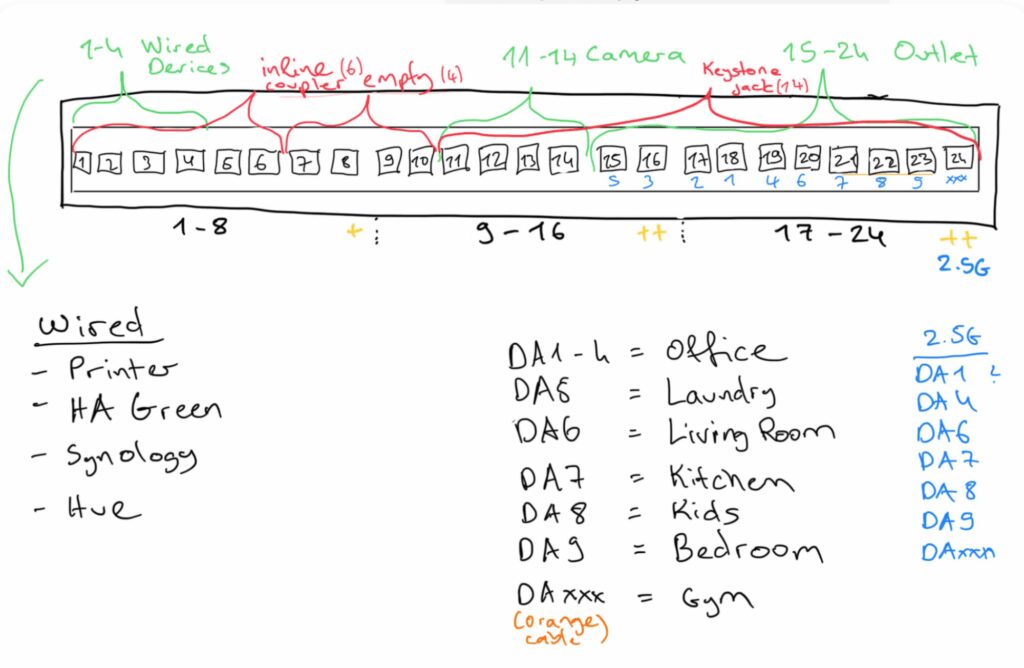 1-4 Wired
Devices
inline (6)
coupler
empty (4)
11-14 Camera
Keystone
jack (14)
15-24 Outlet
1 2 3 4 5 6 7 8 9 10 11 12 13 14 15 16 17 18 19 20 21 22 23 24
5 3 2 1 4 6 7 8 9 xxx
1-8 + 9-16 ++ 17-24 ++
2.5G
Wired
- Printer
- HA Green
- Synology
- Hue
DA1-4 = Office
DA5 = Laundry
DA6 = Living Room
DA7 = Kitchen
DA8 = Kids
DA9 = Bedroom
DAxxx = Gym
(orange)
cable
2.5G
DA1 ?
DA4
DA6
DA7
DA8
DA9
DAxxx